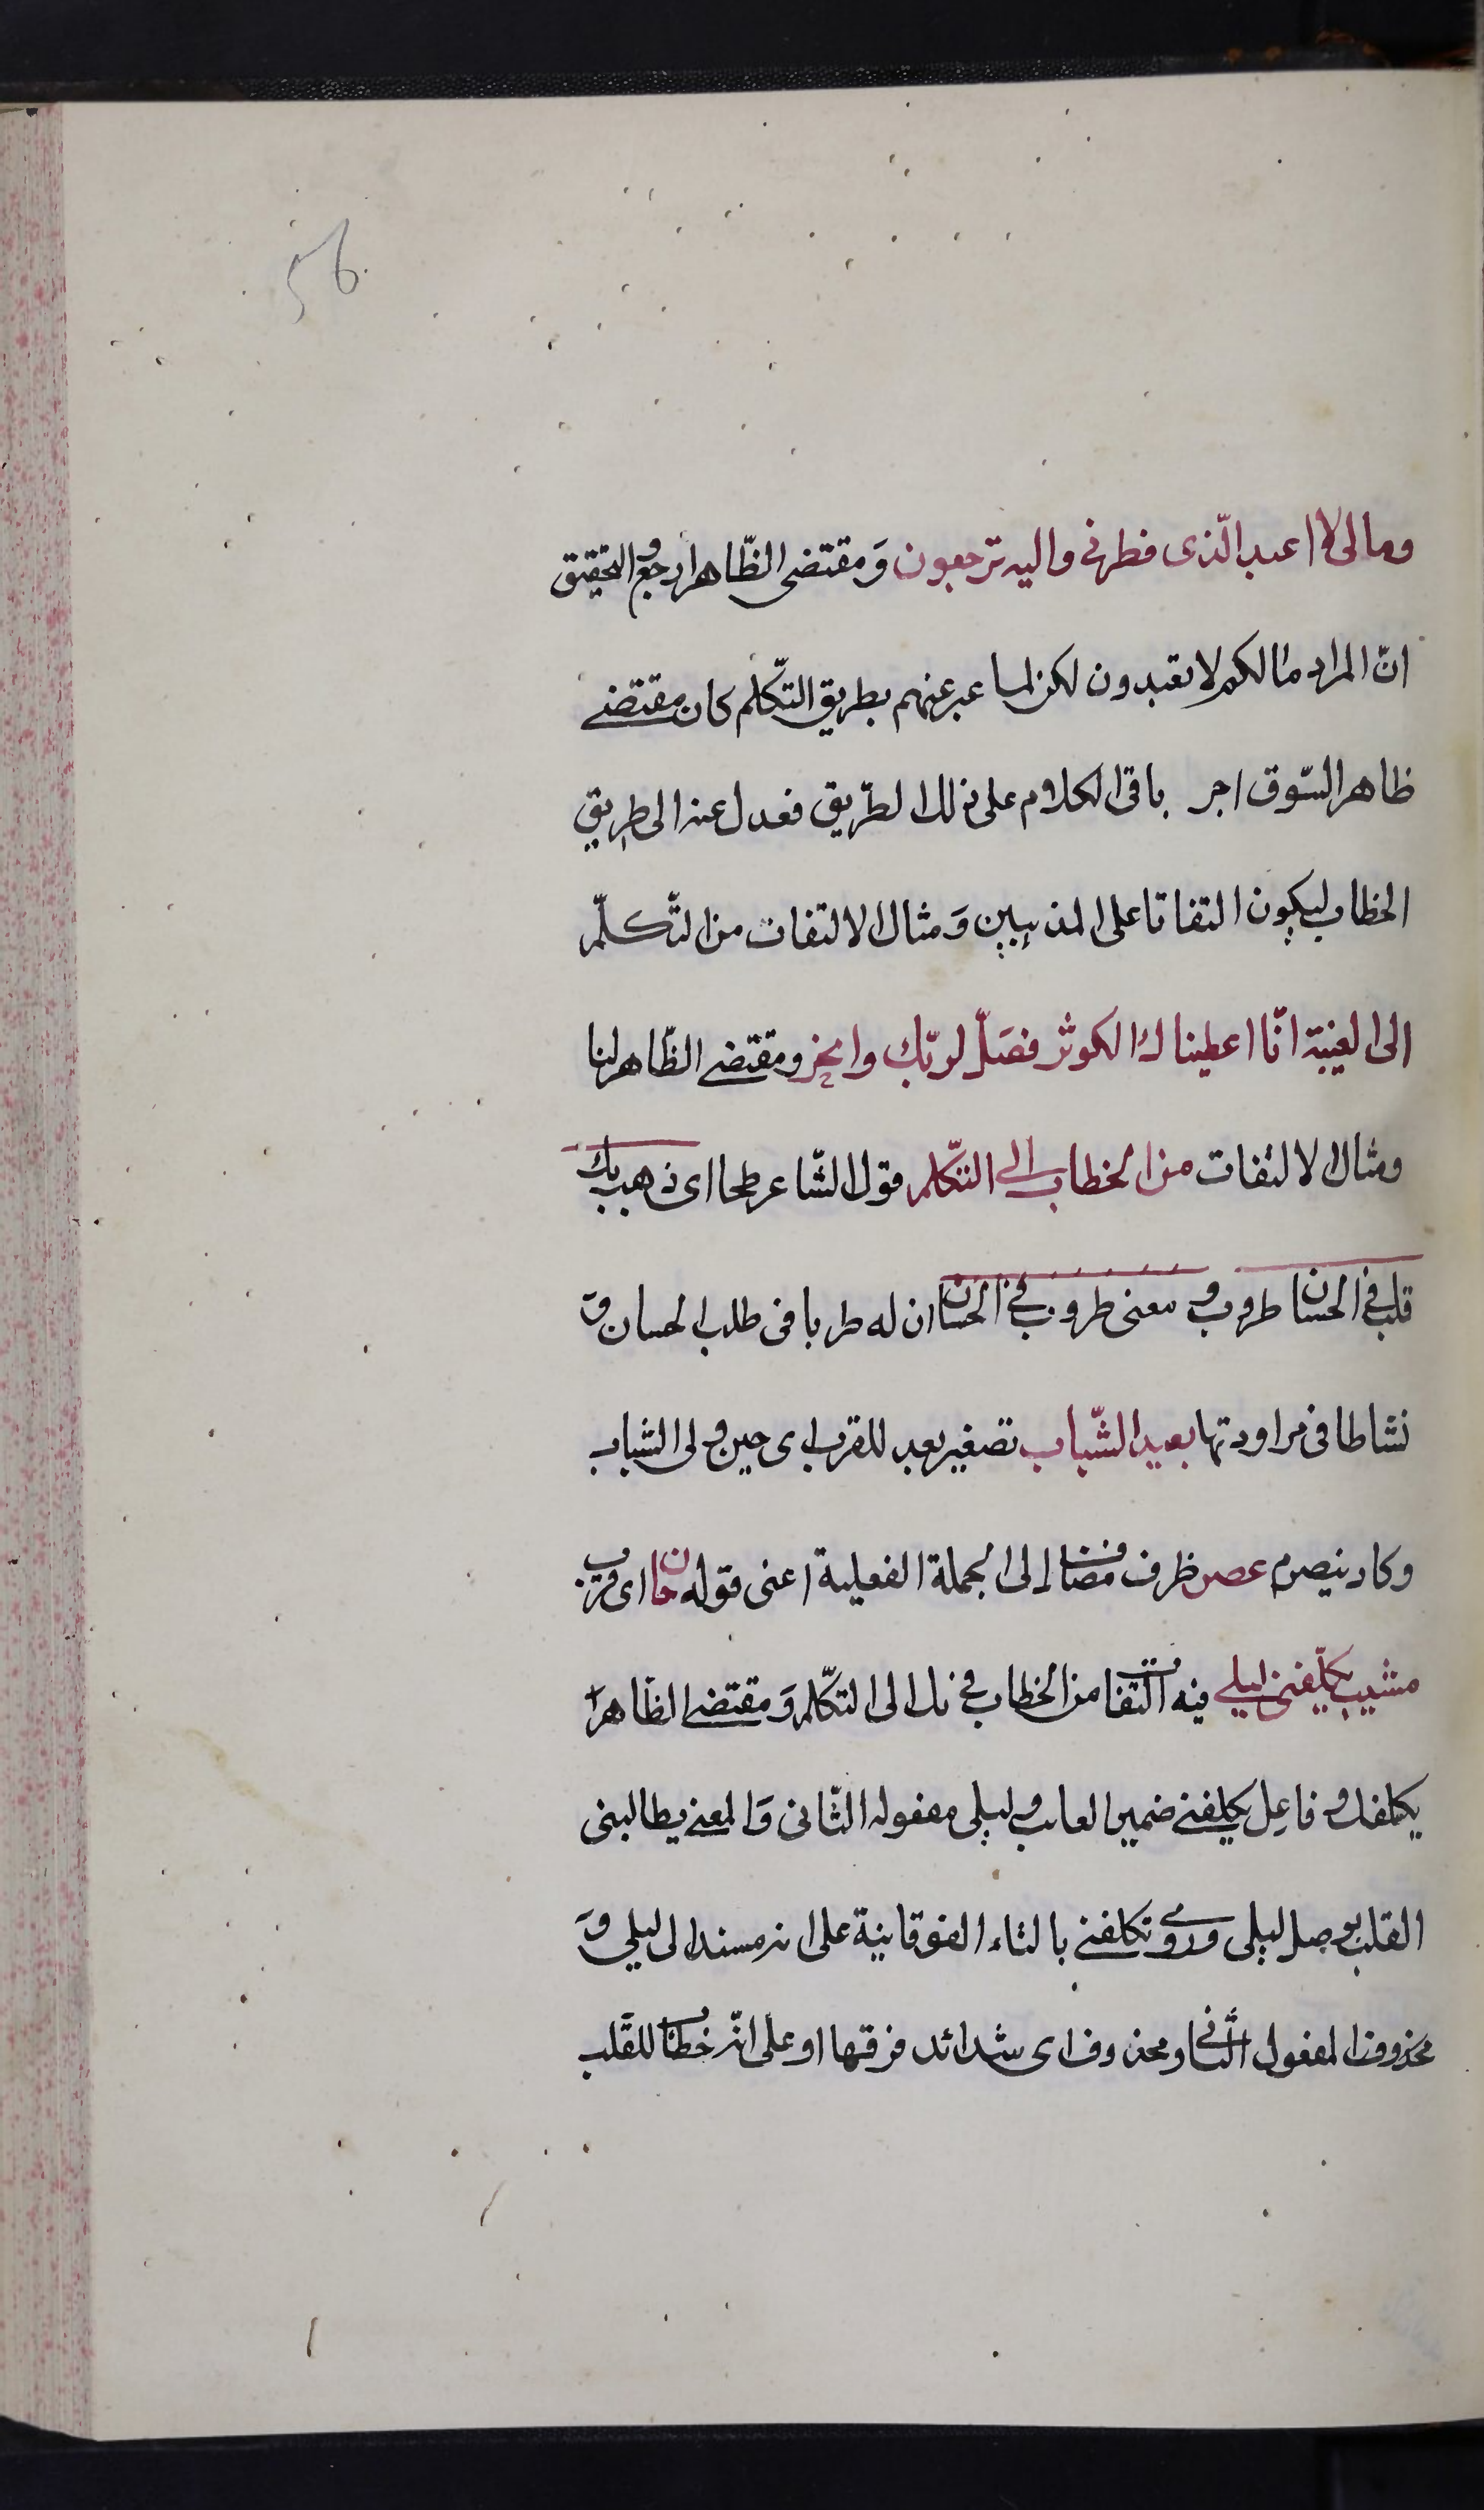 56
ومالی لا اعبد الّذی فطرنی والیه ترجعون وَمقتضی الظّاهر ارجع والتحقیق
انّ المراد مالکم لا تعبدون لکن لما عبر عنهم بطریق التکّلم کان مقتضی
ظاهر السّوق اجر باقی الکلام علی ذلك الطّریق فعدل عنه الی طریق
الخطاب لیکون التفاتا علی المذهبین وَمثال الالتفات من التّکلّم
الی الغیبة انّا اعطیناك الکوثر فصَلّ لربّك وانحر ومقتضی الظّاهر لنا
ومثال الالتفات من الخطاب الی التّکلم قول الشّاعر طحا ای ذهب بك
قلب فی الحسان طروب و معنی طروب فی الحسان ان له طربا فی طلب الحسان وَ
نشاطا فی مراودتها بعید الشّباب تصغیر بعد للقرب ای حین ولی الشباب
وکاد ینصرم عصر ظرف مضاف الی الجملة الفعلیة اعنی قوله حان ای قرب
مشیب یکلّفنی لیلی فیه التفات من الخطاب فی بك الی التکّلم وَمقتضی الظّاهر
یکلفك و فاعل یکلفنی ضمیر القلب ولیلی مفعوله الثّانی وَالمعنی یطالبنی
القلب بوصل لیلی وروی تکلفنی بالتاء الفوقانیة علی انه مسند الی لیلی وَ
المفعول الثّانی محذوف ای شدائد فرقها او علی انّه خطاب للقلب